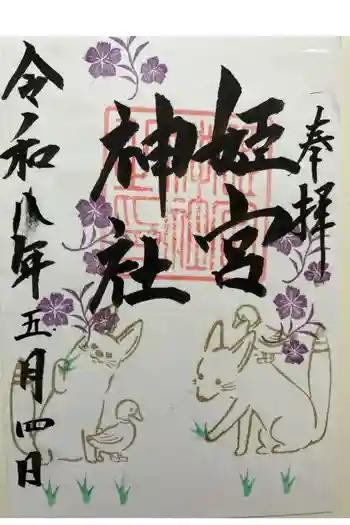 奉拝
姫宮
神社
令和八年五月四日